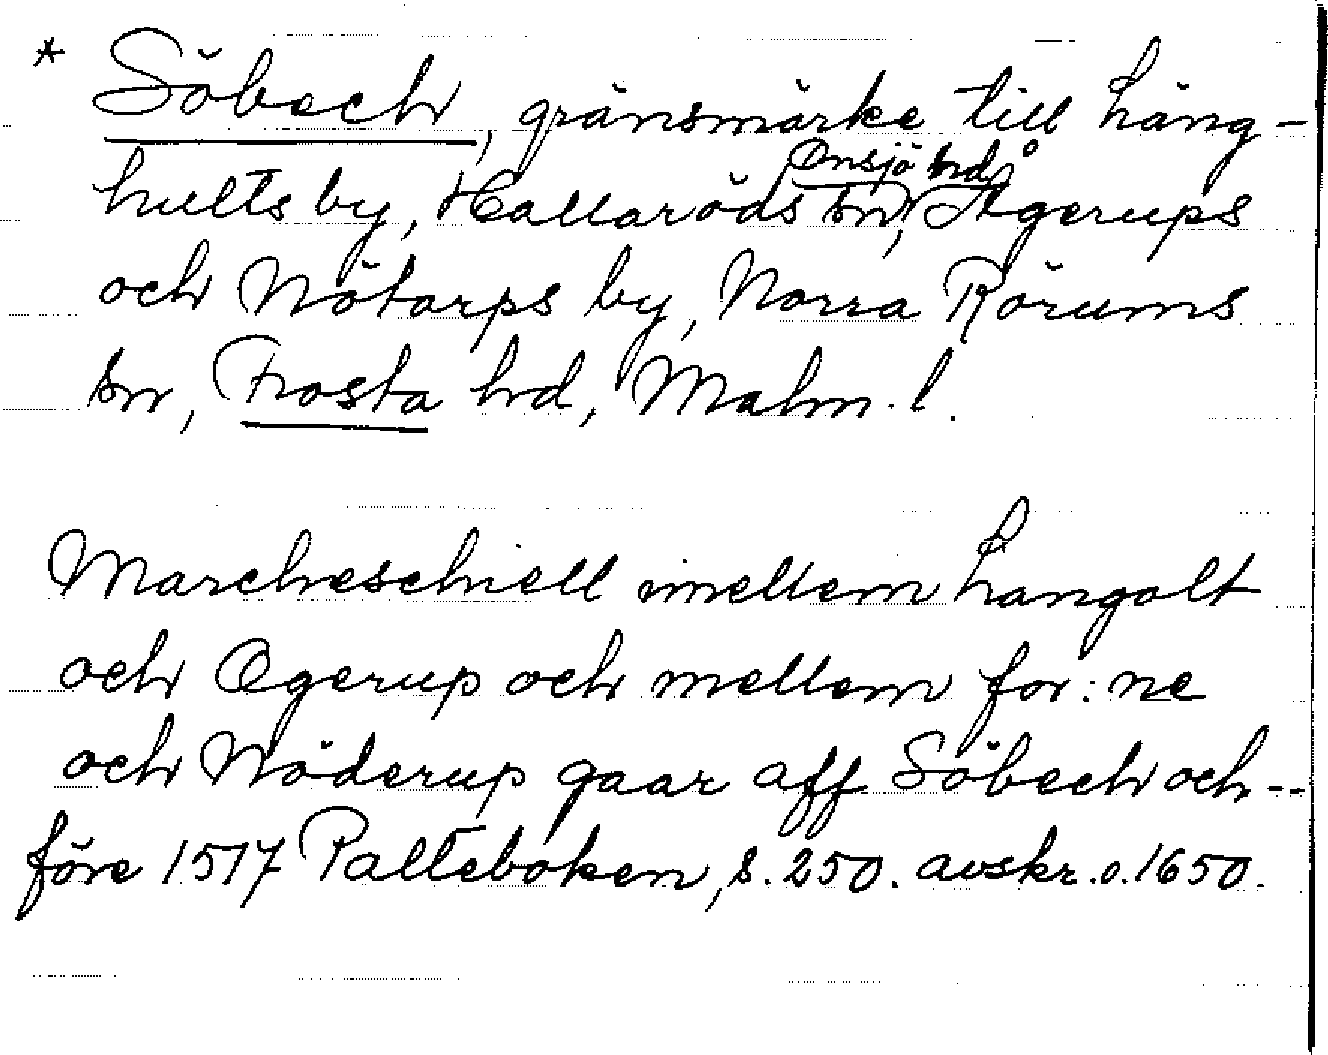 * Söbech, gränsmärke till Häng-
Onsjö hrd
hults by, Hallaröds sn, Ågerups
och Nötarps by, Norra Rörums
sn, Frosta hrd, Malm. l.
Marcheschiell imellem Hangolt
och Ogerup och mellem for: ne
och Nöderup gaar aff Söbech och --
före 1517 Palteboken, s. 250. avskr. o. 1650.